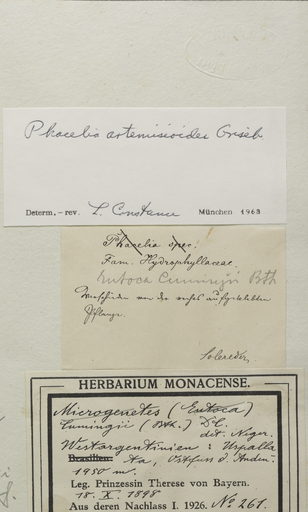 Phacelia artemisioides Griseb
Determ.-rev. L. Constance München 1963
Phacelia spec.
Fam. Hydrophyllaceae.
Eutoca Cumingii Bth
Verschieden von der rechts aufgeklebten
Pflanze.
Solereder
HERBARIUM MONACENSE.
Microgenetes (Eutoca)
Cumingii (Bth.) DC.
det. Neger.
Westargentinien: Uspalla
Brasilien: ta, Ostfuss d. Anden.
1950 m.
Leg. Prinzessin Therese von Bayern.
18. X. 1898
Aus deren Nachlass I. 1926. No 261.